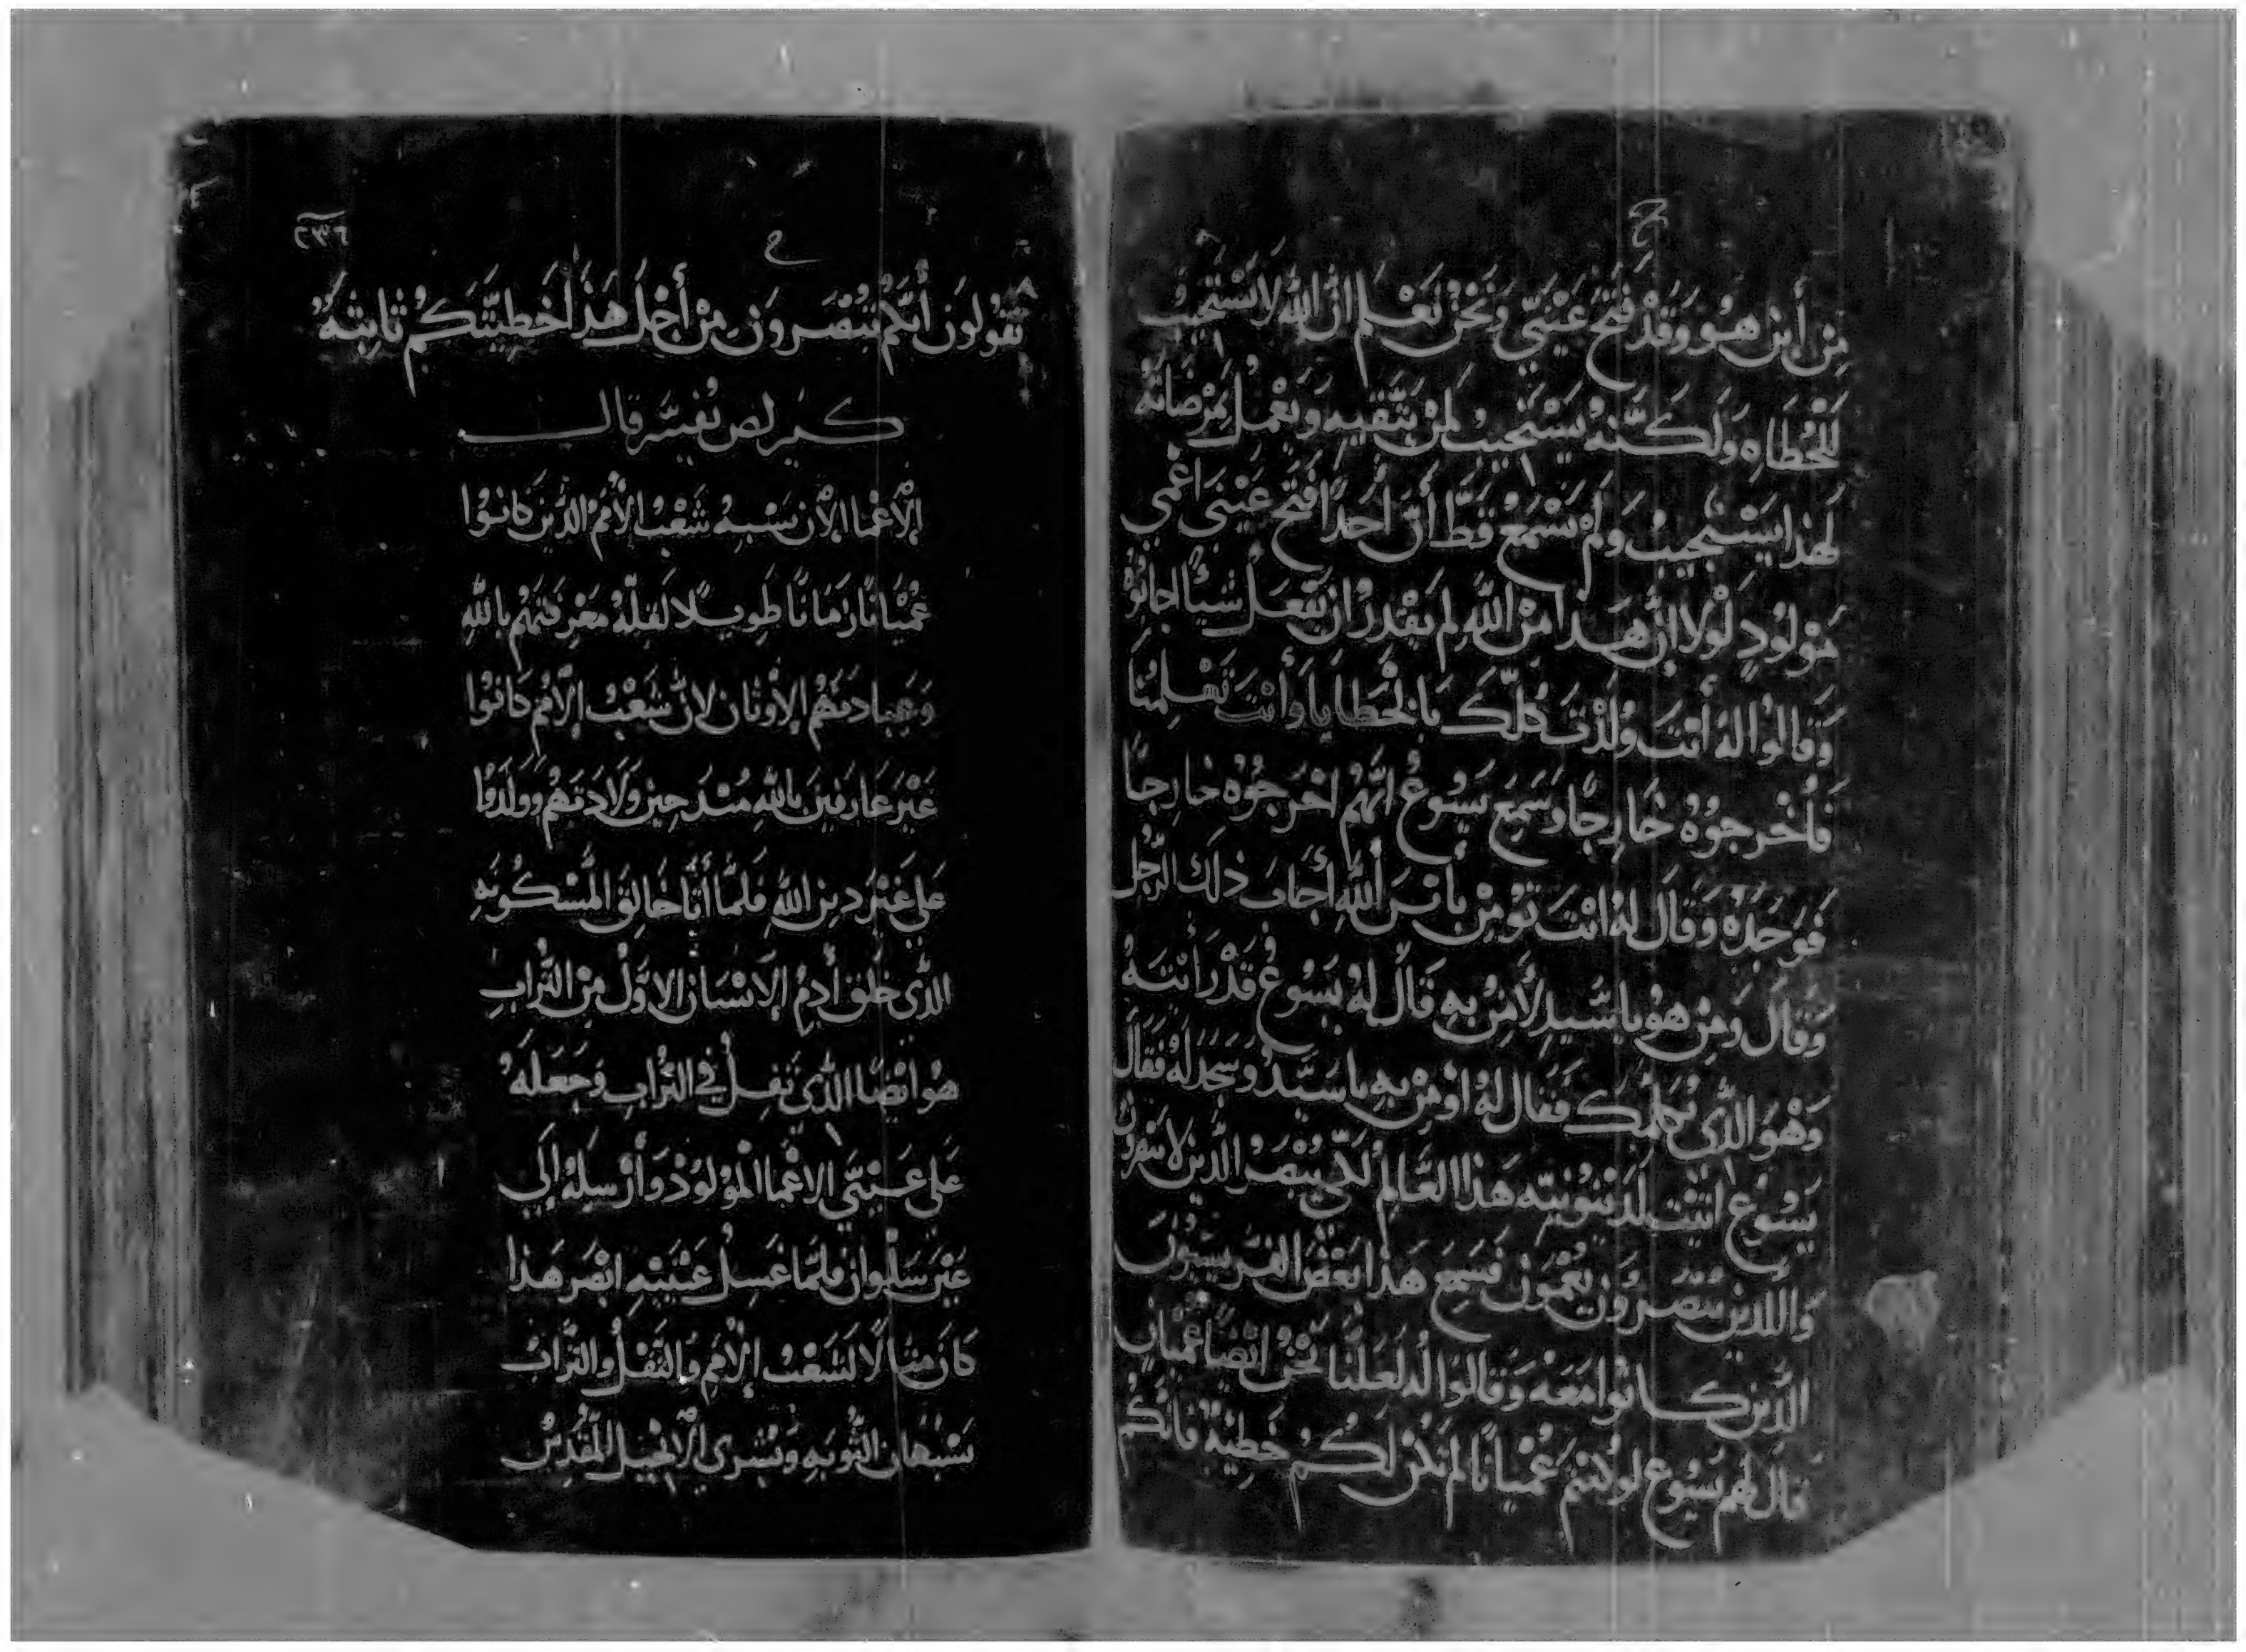 ح
من أين هوو وقد فتح عينيّ ونحن نعلم ان الله لا يستجيب
للخطاه ولكنّه يستجيب لمن يتّقيه ويعمل بمرضاته
لهذا يستجيب ولم يسمع قطّ أن أحدا فتح عيني اعمي
مولود لولا ان هذا من الله لم يقدر ان يفعل شيئا اجابوْ
وقالوا له أنت ولدت كلّك بالخطايا وأنت تعلمنا
فأخرجوه خارجا وسمع يسوع انهم اخرجوه خارجا
فوجده وقال له انت تومن بابن الله أجاب ذلك الرجل
وقال ومن هو يا سيد لأمن به قال له يسوع قد رأيته
وهو الذي يكلمك فقال له اومن به يا سيد وسجد له فقال
يسوع اتيت لدينونية هذا العالم لكي يبصر الذين لا يبصرون
والذين يبصرون يعمون فسمع هذا بعض الفريسيون
الذين كانوا معه وقالوا له لعلنا نحن ايضا عميان
قال لهم يسوع لو كنتم عميانا لم تكن لكم خطية فانكم
٢٣٦
ح
تقولون أنكم تبصرون من أجل هذا خطيتكم ثابته
كيرلص نفسّر قال
الاعما الان يشبه شعب الامم الذين كانوا
عميانا زمانا طويلا لقله معرفتهم بالله
وعبادتهم الاوثان لان شعب الامم كانوا
غير عارفين بالله منذ حين ولادتهم وولدوا
على غير دين الله فلما أتا خالق المسكونه
الذي خلق أدم الانسان الاول من التراب
هو ايضا الذي تفل في التراب وجعله
على عينيّ الاعما المولود وأرسله إلي
عين سلوان فلما غسل عينيه ابصر هذا
كان مثالا لشعب الامم والتفل والتراب
يشبهان التوبه وبشري الانجيل المقدس